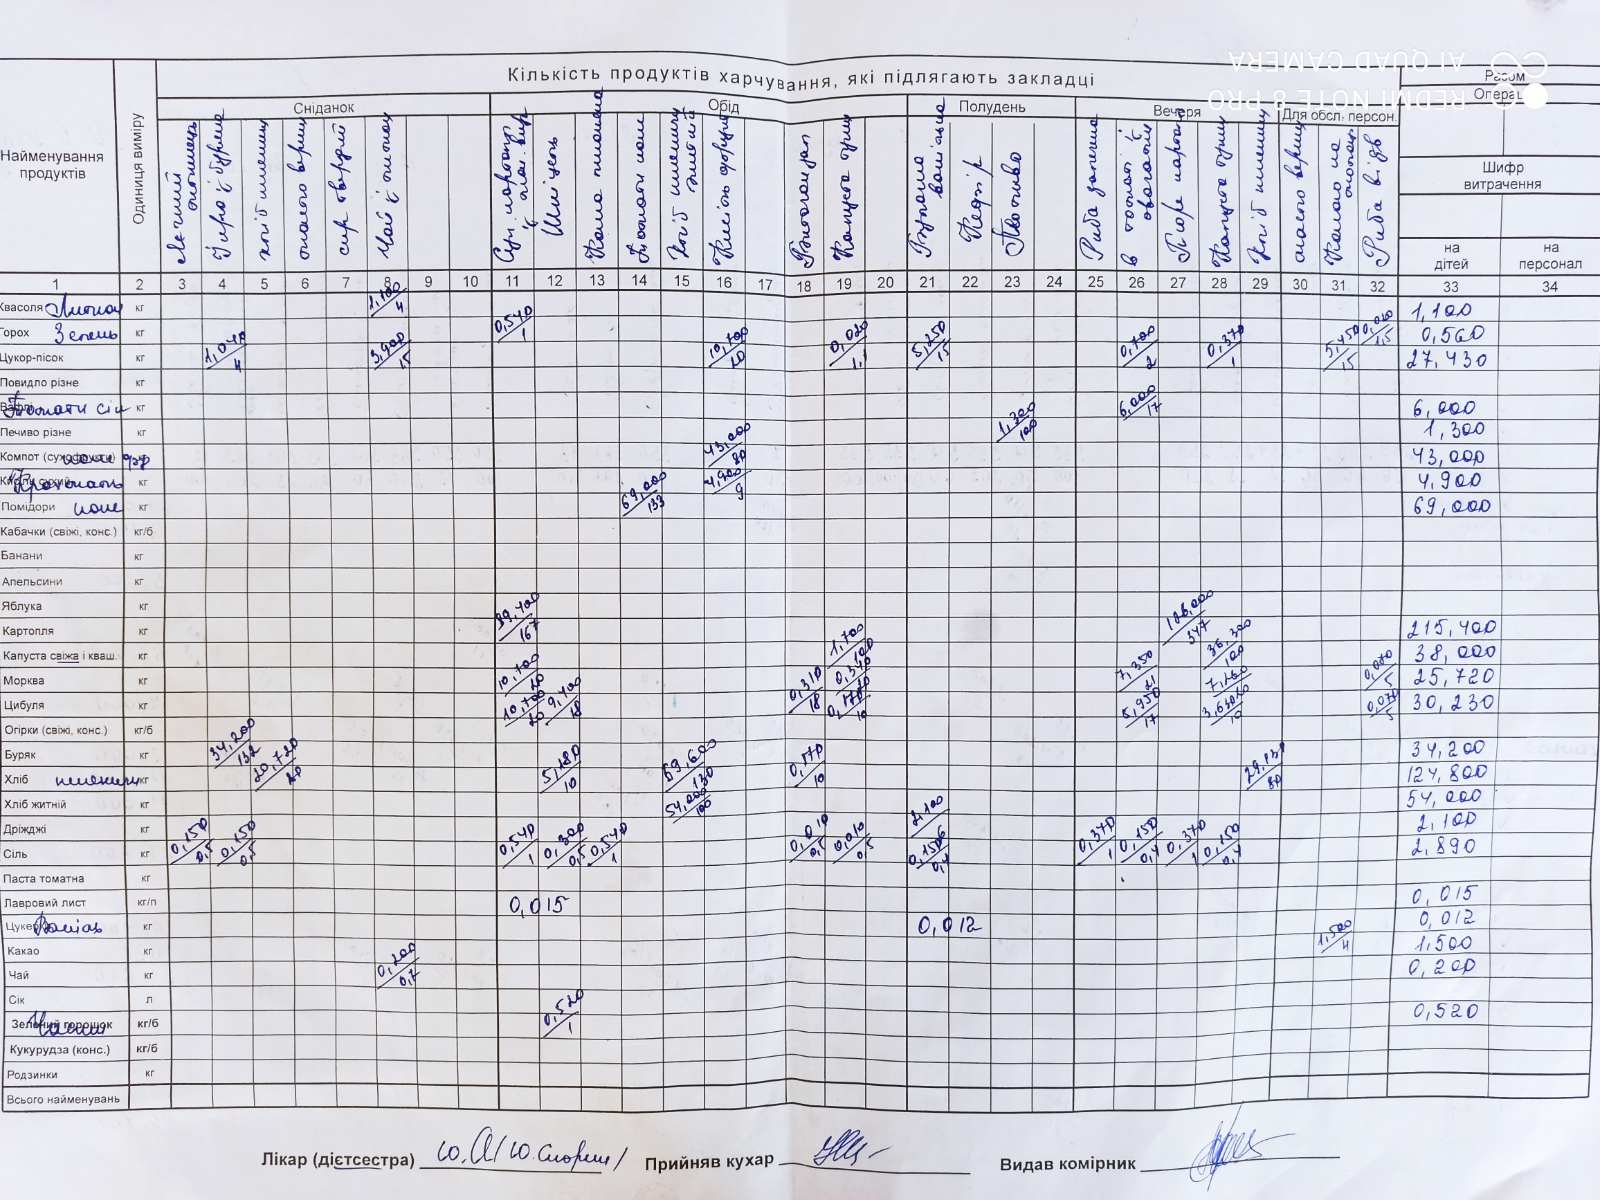 Кількість продуктів харчування, які підлягають закладці
Разом
Операц
Сніданок Обід Полудень Вечеря Для обсл. персон.
Найменування продуктів
Одиниця виміру
Шифр витрачення
на дітей
на персонал
хліб пшениц
масло верш
сир твердий
Чай з лимон
Шніцель
Каша пшонна
Хліб пшениц житній
Капуста туш
Кефір
Печиво
Риба запечена
Пюре картоп
Капуста туш
Хліб пшениц
масло верш
Какао на
Риба відв
1 2 3 4 5 6 7 8 9 10 11 12 13 14 15 16 17 18 19 20 21 22 23 24 25 26 27 28 29 30 31 32 33 34
Квасоля Лимон кг 1,100/4 1,100
Горох Зелень кг 0,540/1 0,020 0,560
Цукор-пісок кг 1,040/4 3,900/15 10,700/20 0,020/1,1 5,250/15 0,700/2 0,370/1 5,450/15 27,430
Повидло різне кг
Вафлі Томати сік кг 6,000/17 6,000
Печиво різне кг 1,300/100 1,300
Компот (сухофрукти) 43,000/80 43,000
Кисіль сухий Крохмаль кг 4,900/9 4,900
Помідори кг 69,000/133 69,000
Кабачки (свіжі, конс.) кг/б
Банани кг
Апельсини кг
Яблука кг
Картопля кг 89,400/167 126,000/347 215,400
Капуста свіжа і кваш. кг 1,700/100 36,300/100 38,000
Морква кг 10,700/20 0,310/18 0,340/20 7,350/21 7,260/20 0,070/5 25,720
Цибуля кг 10,700/20 9,400/18 0,170/10 5,950/17 3,630/10 0,070/5 30,230
Огірки (свіжі, конс.) кг/б
Буряк кг 34,200/132 34,200
Хліб пшениц кг 20,720/80 5,180/10 69,600/130 0,170/10 29,130/80 124,800
Хліб житній кг 54,000/100 54,000
Дріжджі кг 2,100 2,100
Сіль кг 0,150/0,5 0,150/0,5 0,540/1 0,300/0,5 0,540/1 0,010/0,5 0,010/0,5 0,150/0,4 0,370/1 0,150/0,4 0,370/1 0,150/0,4 2,890
Паста томатна кг
Лавровий лист кг/п 0,015 0,015
Цукерки Ваніль кг 0,012 0,012
Какао кг 1,500/4 1,500
Чай кг 0,200/0,7 0,200
Сік л
Зелений горошок Часник кг/б 0,520/1 0,520
Кукурудза (конс.) кг/б
Родзинки кг
Всього найменувань
Лікар (дієтсестра) Прийняв кухар Видав комірник
REDMI NOTE 8 PRO
AI QUAD CAMERA